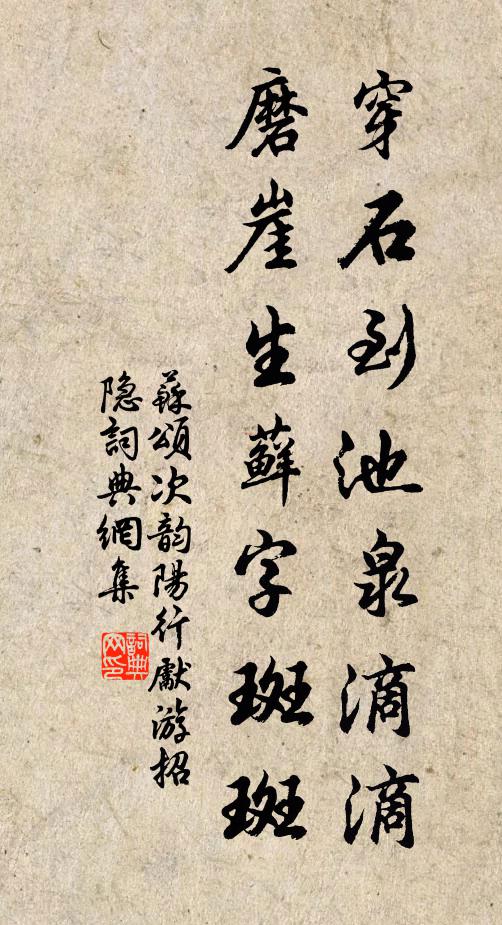 穿石到池泉滴滴
磨崖生蘚字斑斑
蘇頌次韵陽行獻游招
隐詞典網集
詞典网印